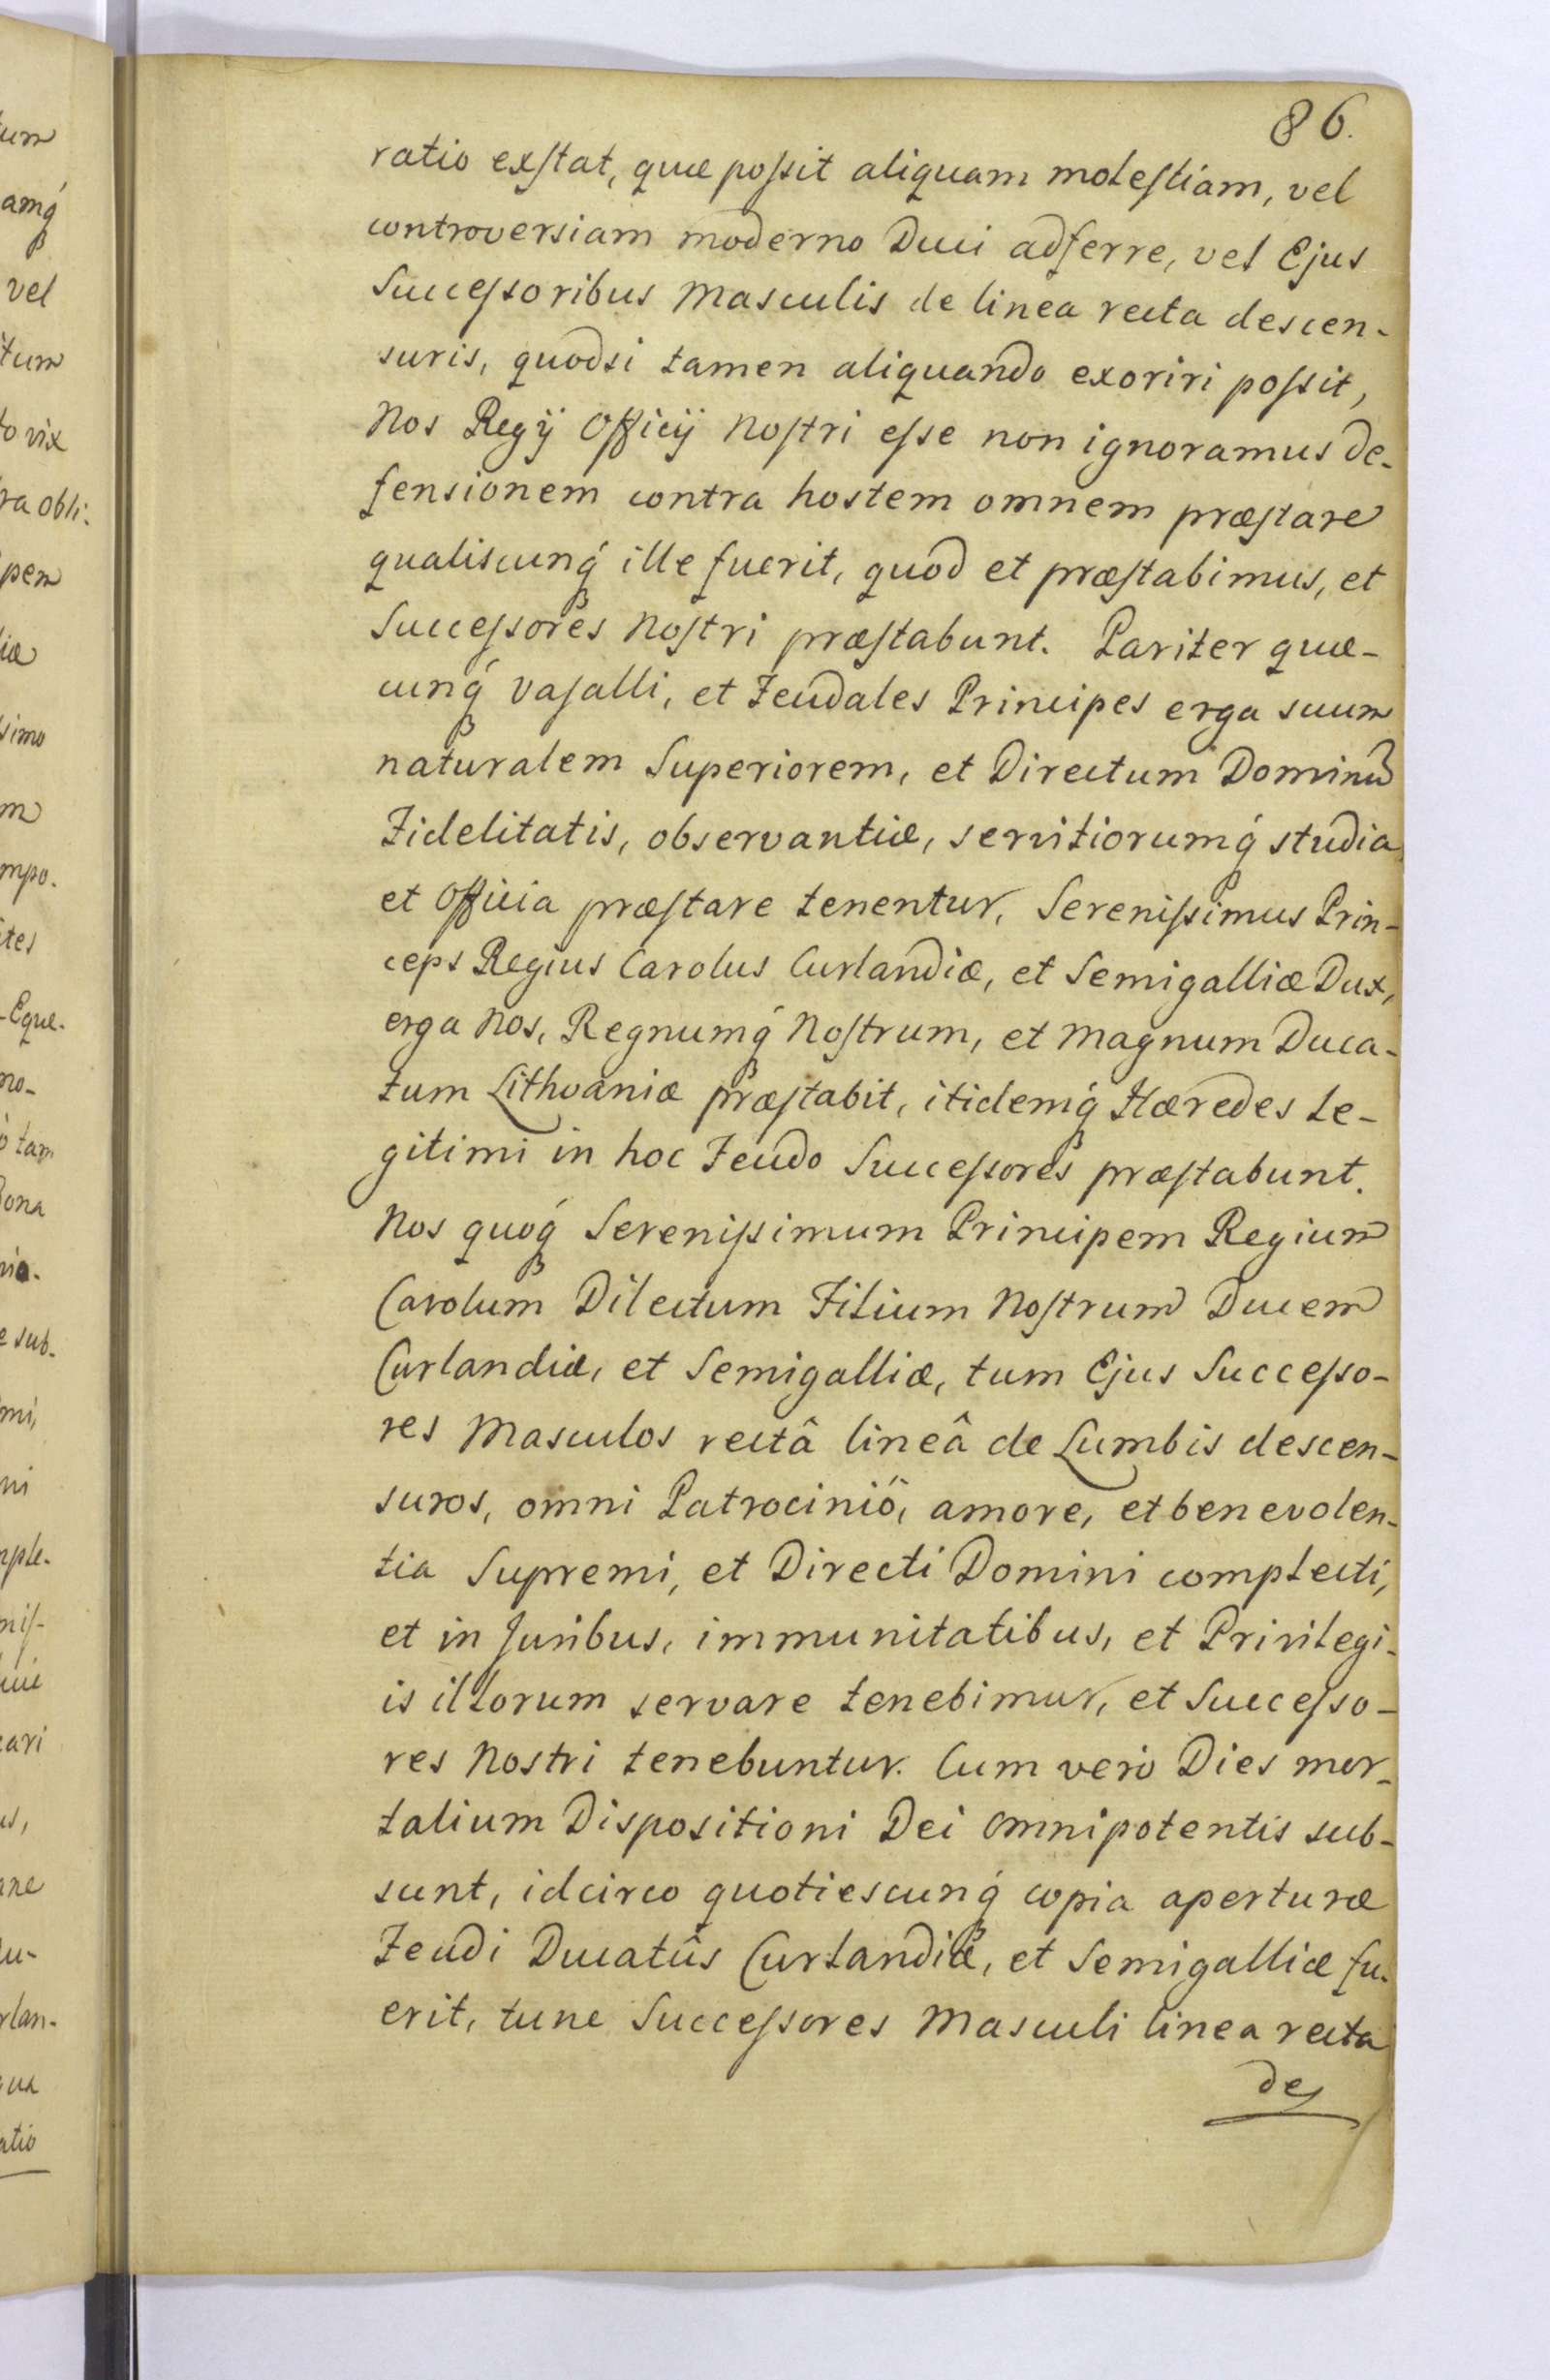 86.
ratio exſtat, quæ poſsit aliquam moleſtiam, vel
controversiam moderno Duci adferre, vel Ejus
Succeſsoribus Masculis de linea recta descen-
suris, quodsi tamen aliquando exoriri poſsit,
Nos Regÿ Officÿ Noſtri eſse non ignoramus de-
fensionem contra hostem omnem præſtare
qualiscunq́ ille fuerit, quod et præſtabimus, et
Succeſsores Noſtri præſtabunt. Pariter quæ-
cunq́ Vaſalli, et Feudales Principes erga suum
naturalem Superiorem, et Directum Dominū
Fidelitatis, observantiæ, servitiorumq́ studia
et Officia præſtare tenentur, Sereniſsimus Prin-
ceps Regius Carolus Curlandiæ, et Semigalliæ Dux,
erga Nos, Regnumq́ Noſtrum, et Magnum Duca-
tum Lithvaniæ præſtabit, itidemq́ Hæredes Le-
gitimi in hoc Feudo Succeſsores præſtabunt.
Nos quoq́ Sereniſsimum Principem Regium
Carolum Dilectum Filium Noſtrum Ducem
Curlandiæ, et Semigalliæ, tum Ejus Succeſso-
res Masculos rectâ lineâ de Lumbis descen-
suros, omni Patrociniô, amore, et benevolen-
tia Supremi, et Directi Domini complecti,
et in Juribus, immunitatibus, et Privilegi-
is illorum servare tenebimur, et Succeſso-
res Nostri tenebuntur. Cum verò Dies mor-
talium Dispositioni Dei Omnipotentis sub-
sunt, idcirco quotiescunq́ copia aperturæ
Feudi Ducatûs Curlandiæ, et Semigalliæ fu-
erit, tunc Succeſsores Masculi linea recta
de
um
amq́
vel
tum
to vix
ra obli:
pem
iæ
simo
m
mpo.
ites
-Eque-
no-
ò tam
Bona
e sub-
mi,
ni
mple-
niſ-
cari
us,
ane
u-
rlan-
qua
atio